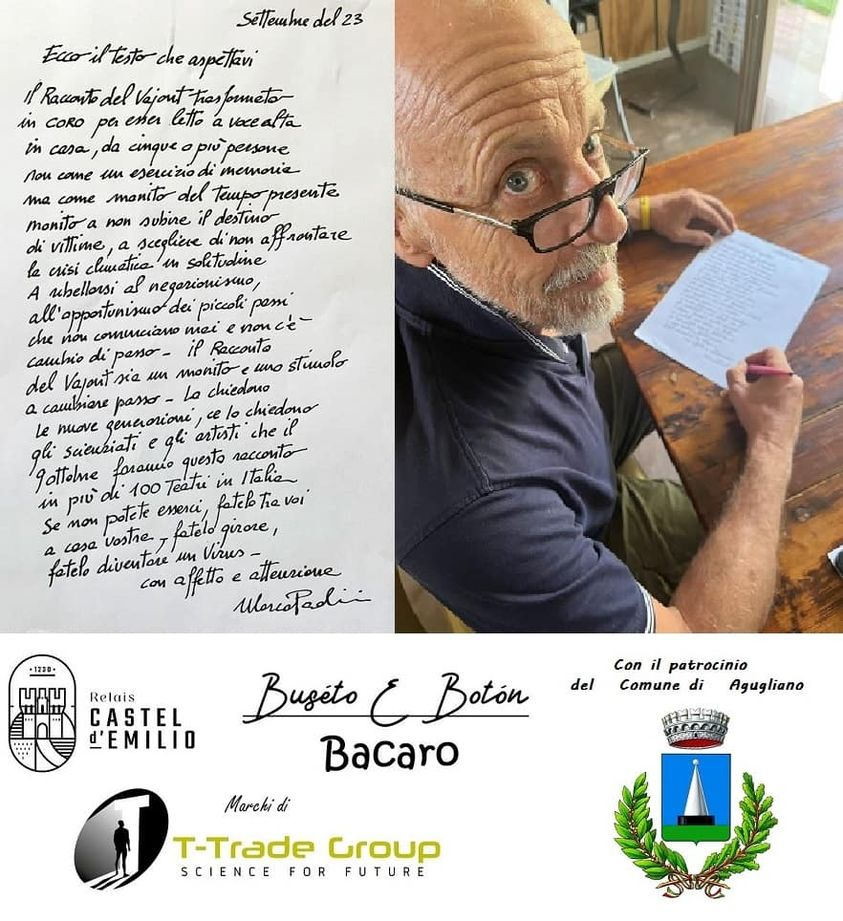 Settembre del 23
Ecco il testo che aspettavi
Il Racconto del Vajont trasformato
in CORO per esser letto a voce alta
in casa, da cinque o più persone
non come un esercizio di memoria
ma come monito del tempo presente
monito a non subire il destino
di vittime, a scegliere di non affrontare
la crisi climatica in solitudine
A ribellarsi al negazionismo,
all'opportunismo dei piccoli passi
che non cominciano mai e non c'è
cambio di passo - il Racconto
del Vajont sia un monito e uno stimolo
a cambiare passo - Lo chiedono
le nuove generazioni, ce lo chiedono
gli scienziati e gli artisti che il
9 ottobre faranno questo racconto
in più di 100 Teatri in Italia
Se non potete esserci, fatelo tra voi
a casa vostra, fatelo girare,
fatelo diventare un Virus -
con affetto e attenzione
Marco Paolini
·1230·
Relais
CASTEL
d'EMILIO
Buséto E Botón
Bacaro
Con il patrocinio
del Comune di Agugliano
Marchi di
T
T-Trade Group
SCIENCE FOR FUTURE